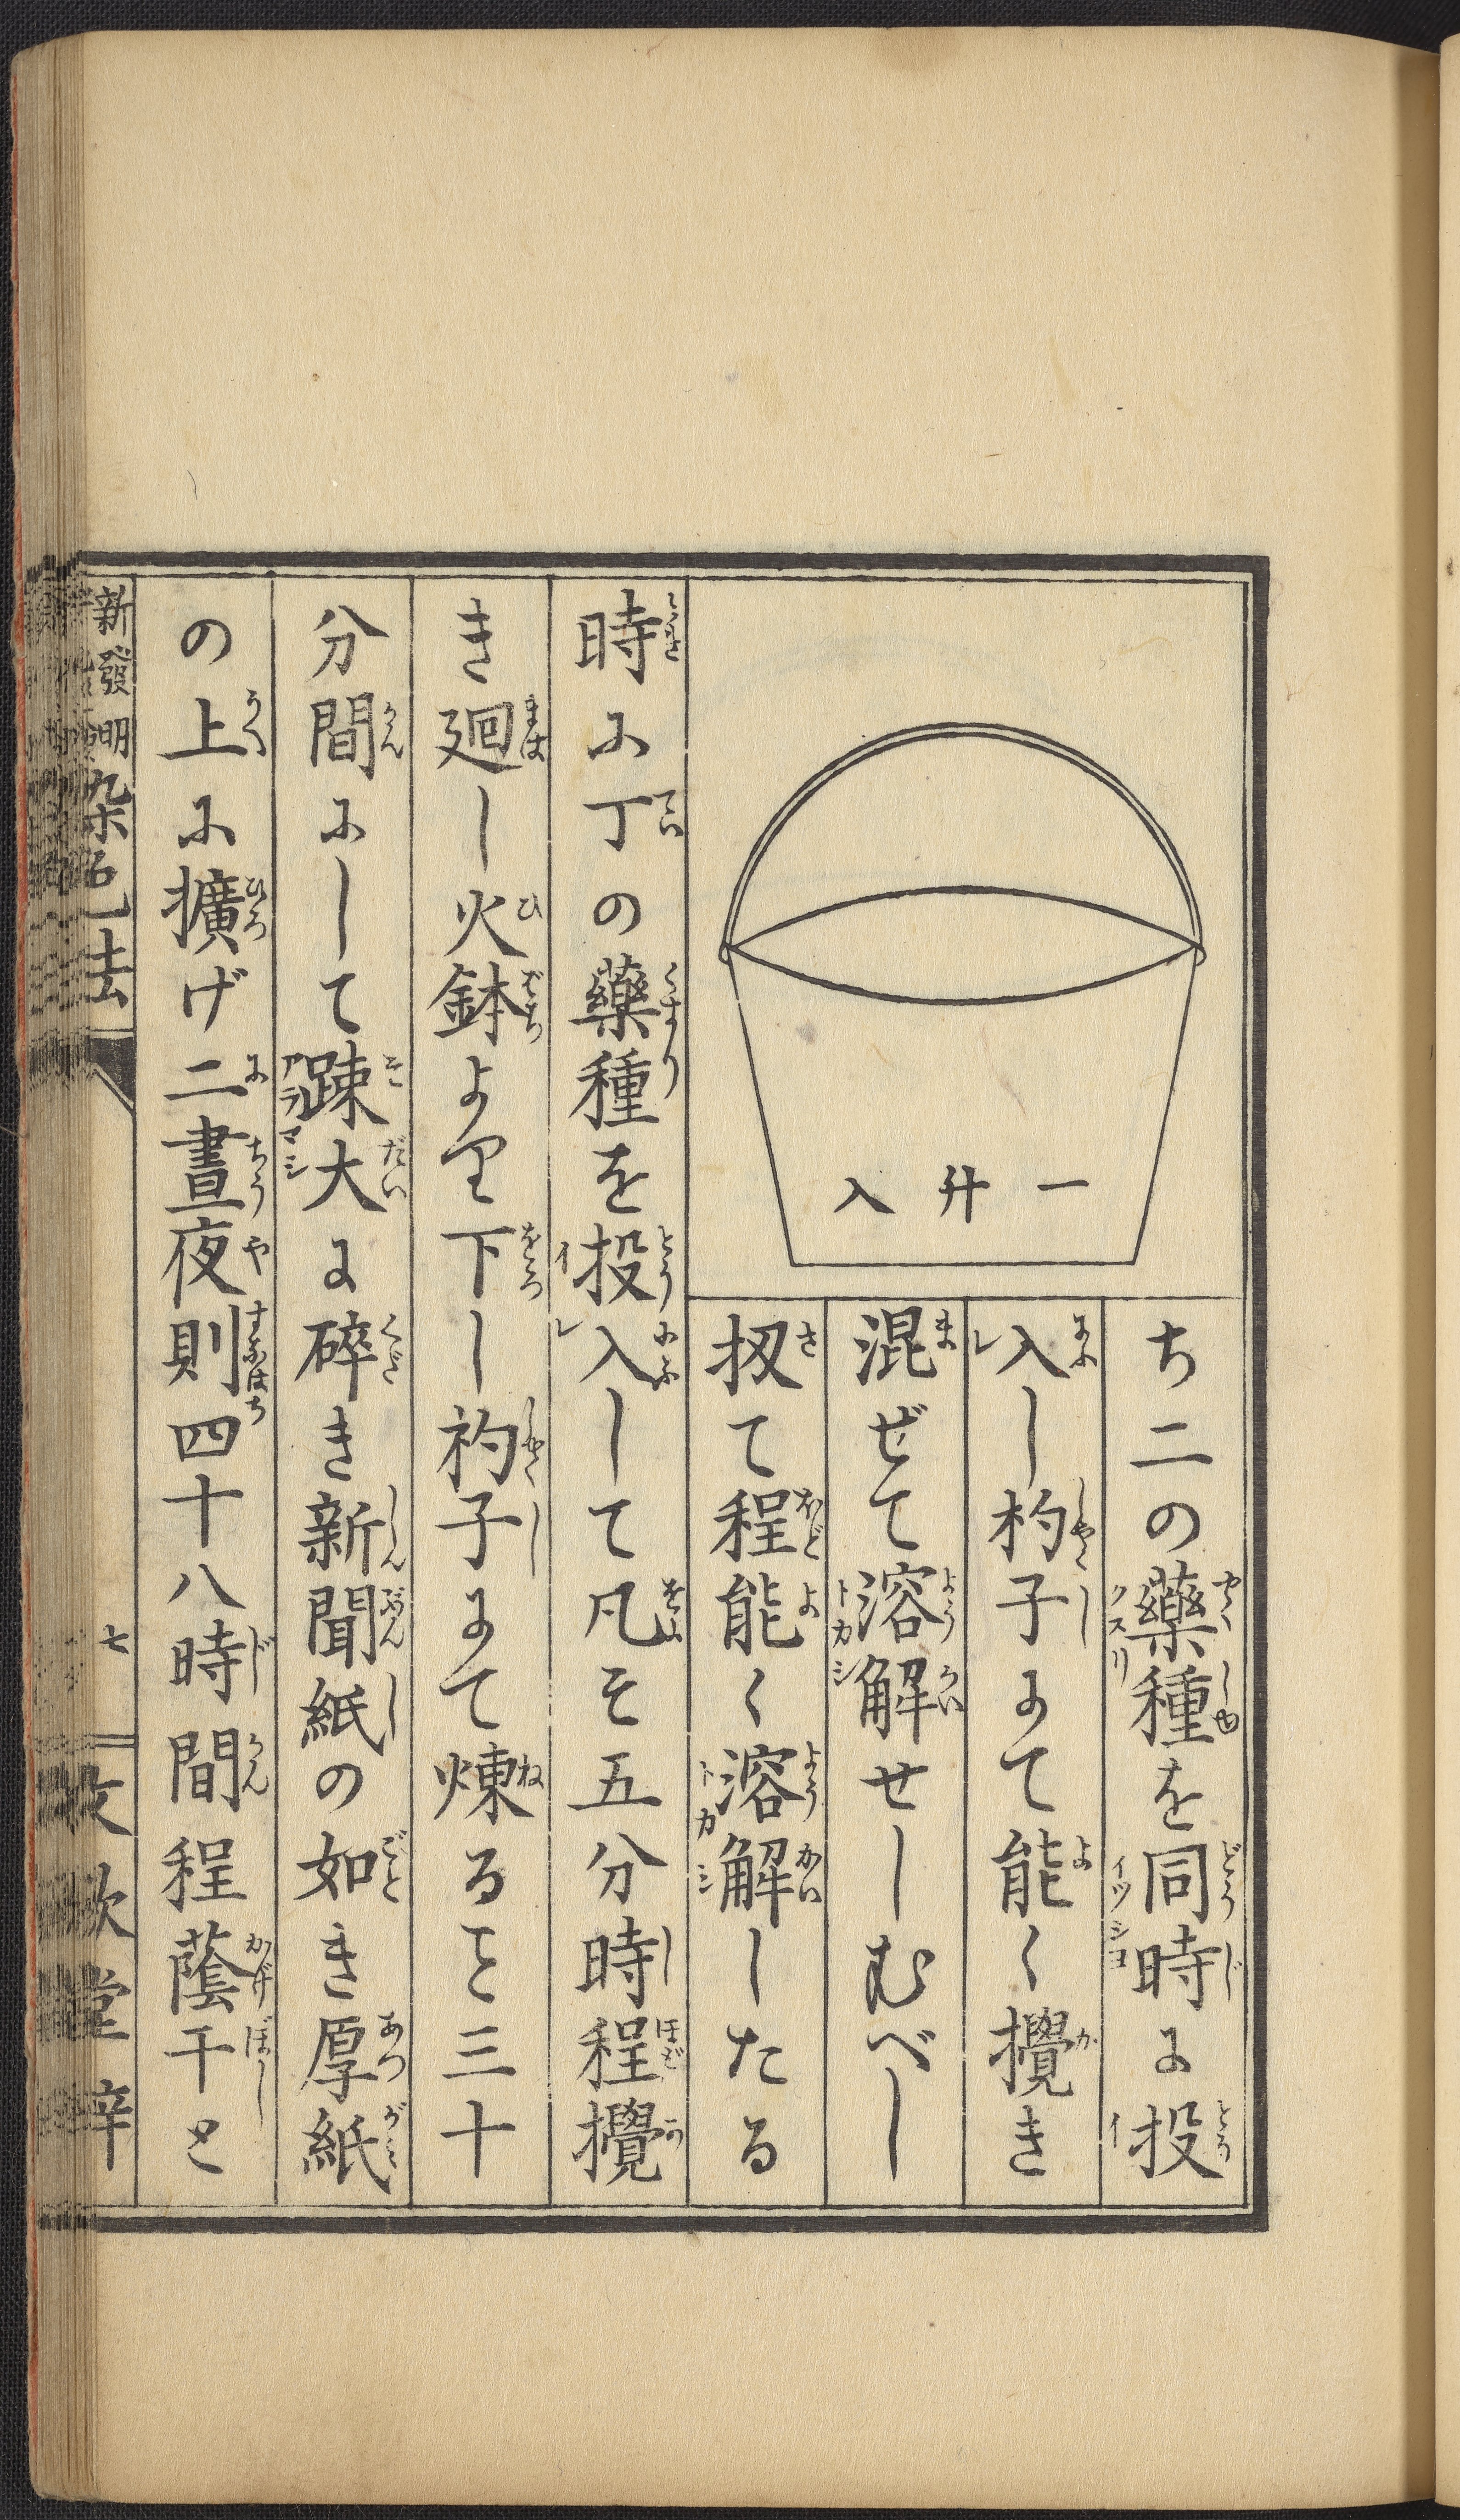 一升入
ち二の藥種を同時に投
入し杓子にて能く攪き
混ぜて溶解せしむべし
扨て程能く溶解したる
時に丁の藥種を投入して凡そ五分時程攪
き廻し火鉢より下し杓子にて煉ること三十
分間にして踈大に碎き新聞紙の如き厚紙
の上に擴げ二晝夜則四十八時間程蔭干と
新發明染色法
七